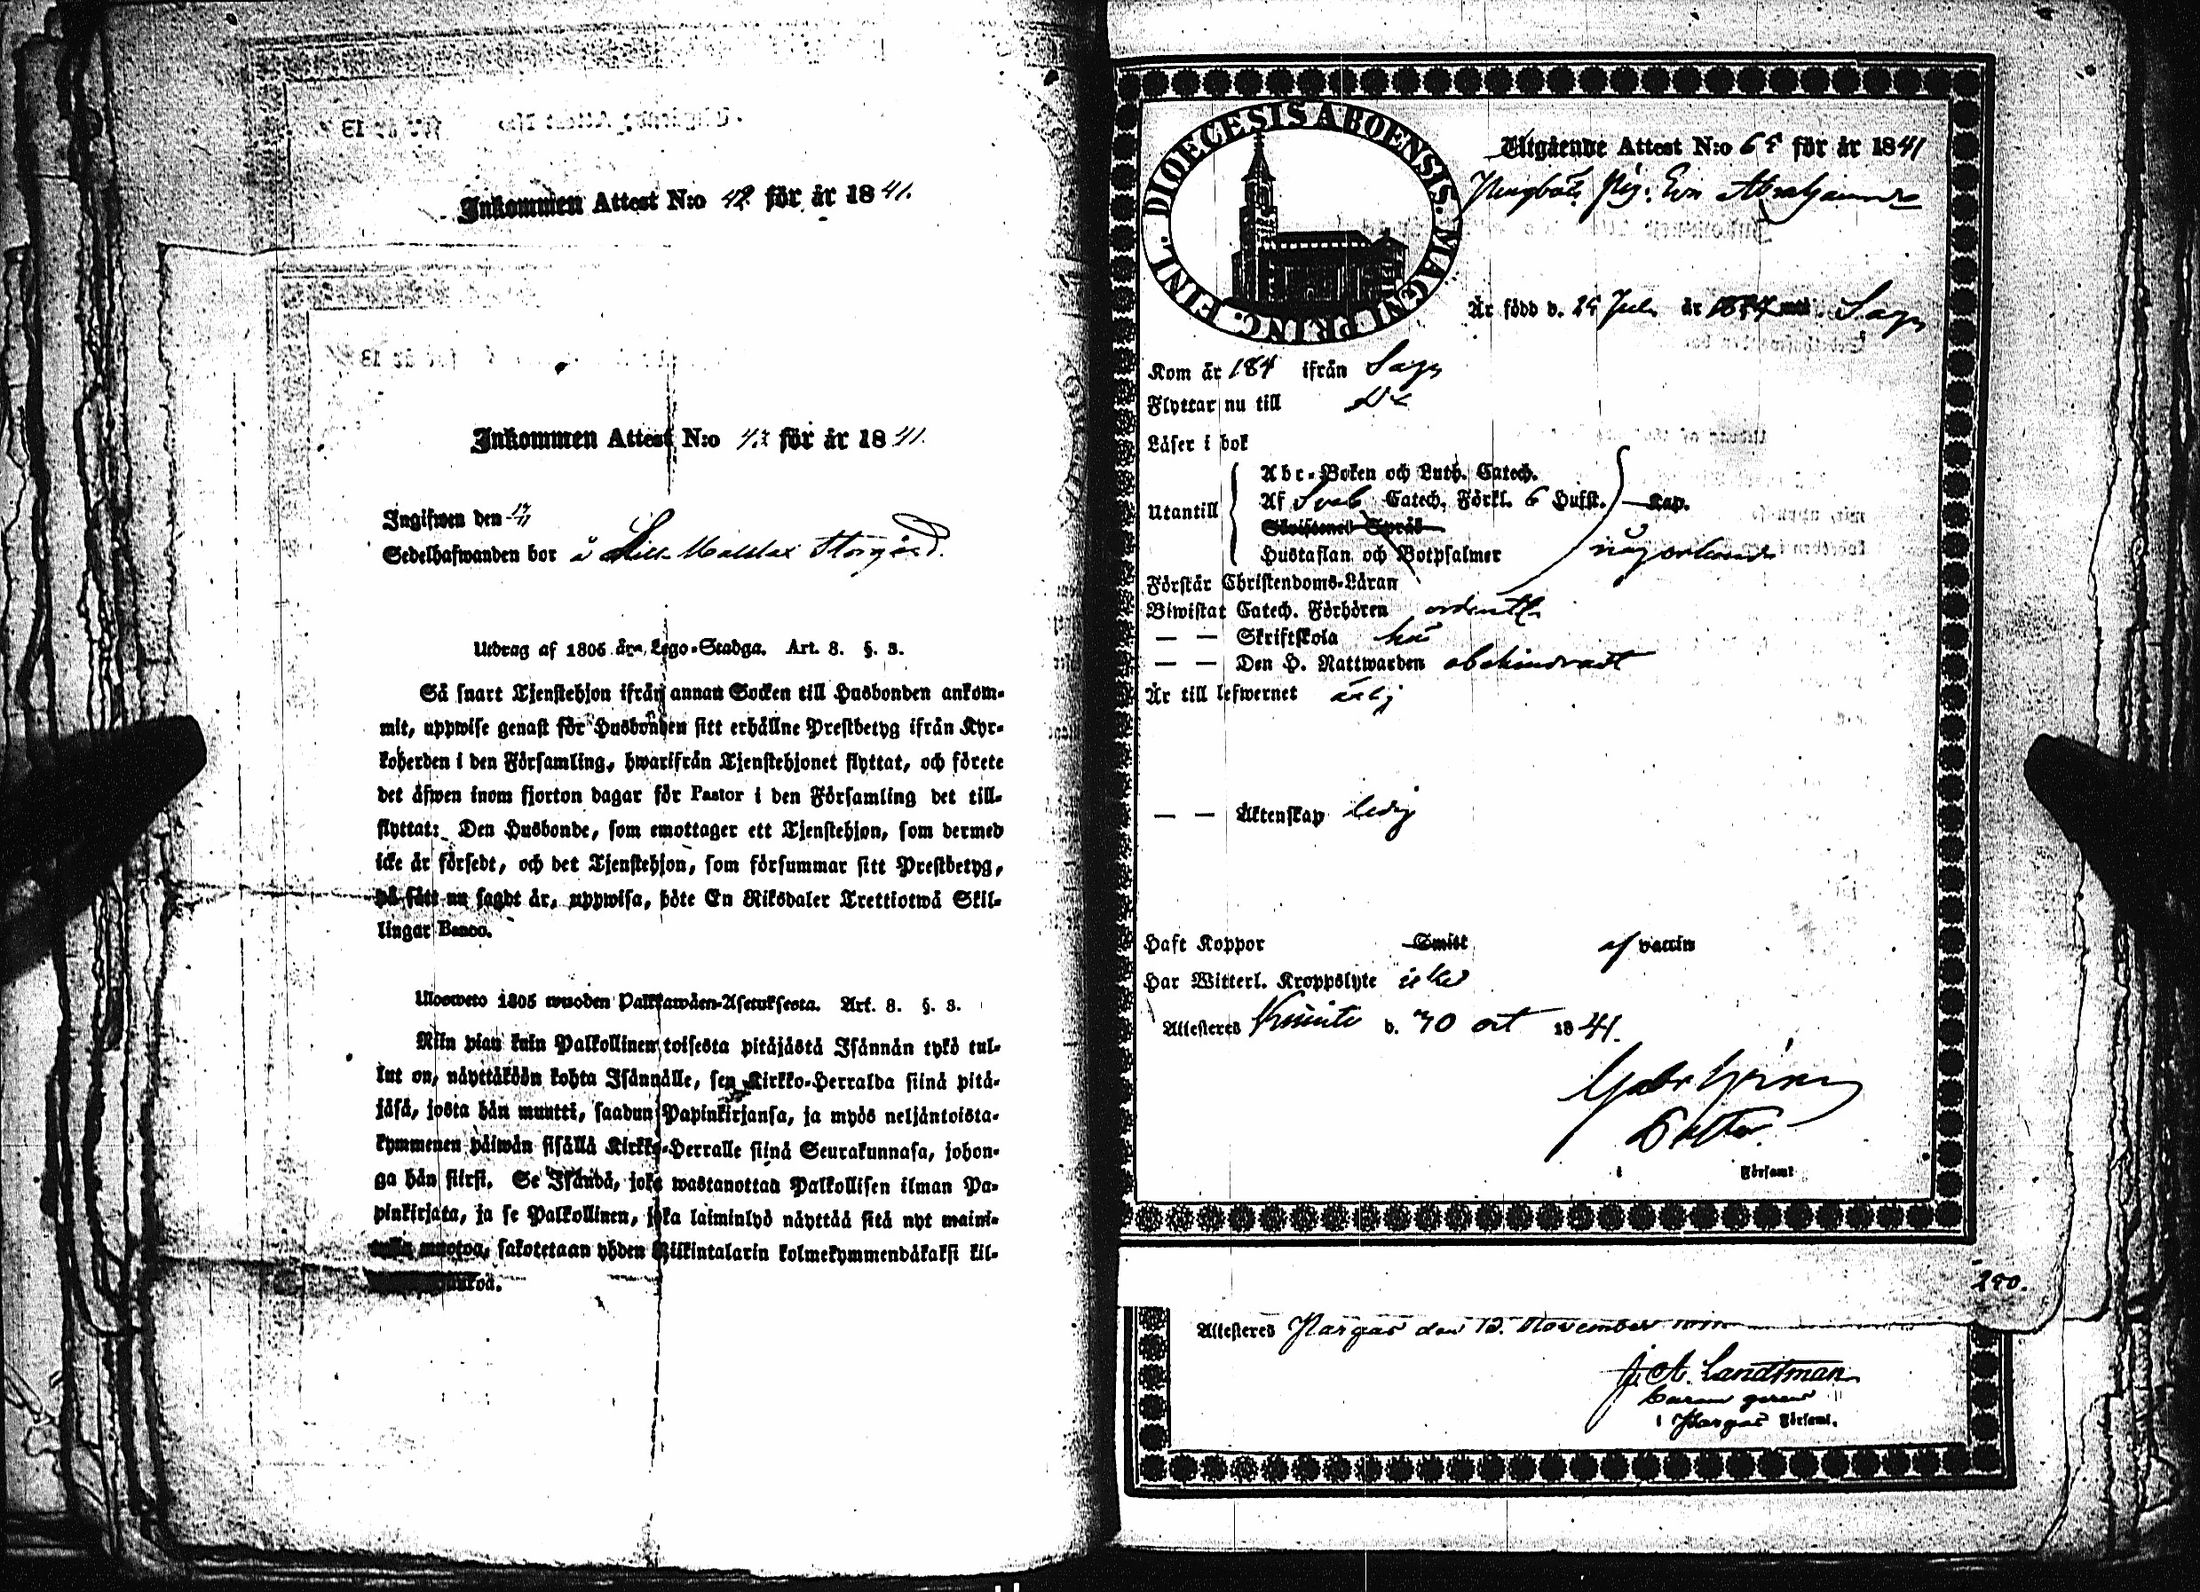 Inkommen Attest N:o 42 för år 1841.
Inkommen Attest N:o för år 1841.
Ingifwen den
Sedelhafwanden bor å Lill Maldax Storgård.
Utdrag af 1805 års Lego-Stadga. Art. 8. §. 3.
Så snart Tjenstehjon ifrån annan Socken till Husbonden ankom-
mit, uppwise genast för Husbonden sitt erhållne Prestbetyg ifrån Kyr-
koherden i den Församling, hwarifrån Tjenstehjonet flyttat, och förete
det äfwen inom fjorton dagar för Pastor i den Församling det till-
flyttat: Den Husbonde, som emottager ett Tjenstehjon, som dermed
icke är försedt, och det Tjenstehjon, som försummar sitt Prestbetyg,
på sätt nu sagdt är, uppwisa, böte En Riksdaler Trettiotwå Skil-
lingar Banco.
Ulosweto 1805 wuoden Palkkawäen-Asetuksesta. Art. 8. §. 3.
Niin pian kuin Palkollinen toisesta pitäjästä Isännän tykö tul-
lut on, näyttäköön kohta Isännälle, sen Kirkko-Herralda siinä pitä-
jäsä, josta hän muutti, saadun Papinkirjansa, ja myös neljäntoista-
kymmenen päiwän sisällä Kirkko-Herralle siinä Seurakunnasa, johon-
ga hän siirsi. Se Isändä, joka wastanottaa Palkollisen ilman Pa-
pinkirjata, ja se Palkollinen, joka laiminlyö näyttää sitä nyt maini-
muotoa, sakotetaan yhden Riikintalarin kolmekymmendäkaksi kil-
DIOECESIS ABOENSIS. MAGNI PRINC. FINL.
Utgående Attest N:o för år 1841
Pig. Eva Abrahamsdr
Är född d. Juli år i Sagu
Kom år 184 ifrån Sagu
Flyttar nu till
Läser i bok
Abc-Boken och Luth. Catech.
Utantill Af Sveb Catech. Förkl. 6 Hufst. Kap.
Skriftenes Språk
Hustaflan och Botpsalmer någorlunda
Förstår Christendoms-Läran
Biwistat Catech. Förhören ordentl.
— — Skriftskola här
— — Den H. Nattwarden obehindradt
Är till lefwernet ärlig
— — Äktenskap ledig
Haft Koppor Smitt af vaccin
Har Witterl. Kroppslyte icke
Attesteres Kimito d. 30 oct 1841.
i Församl
Attesteres Pargas den 13. November
J. A. Landtman
Curam gerens
i Pargas Församl.